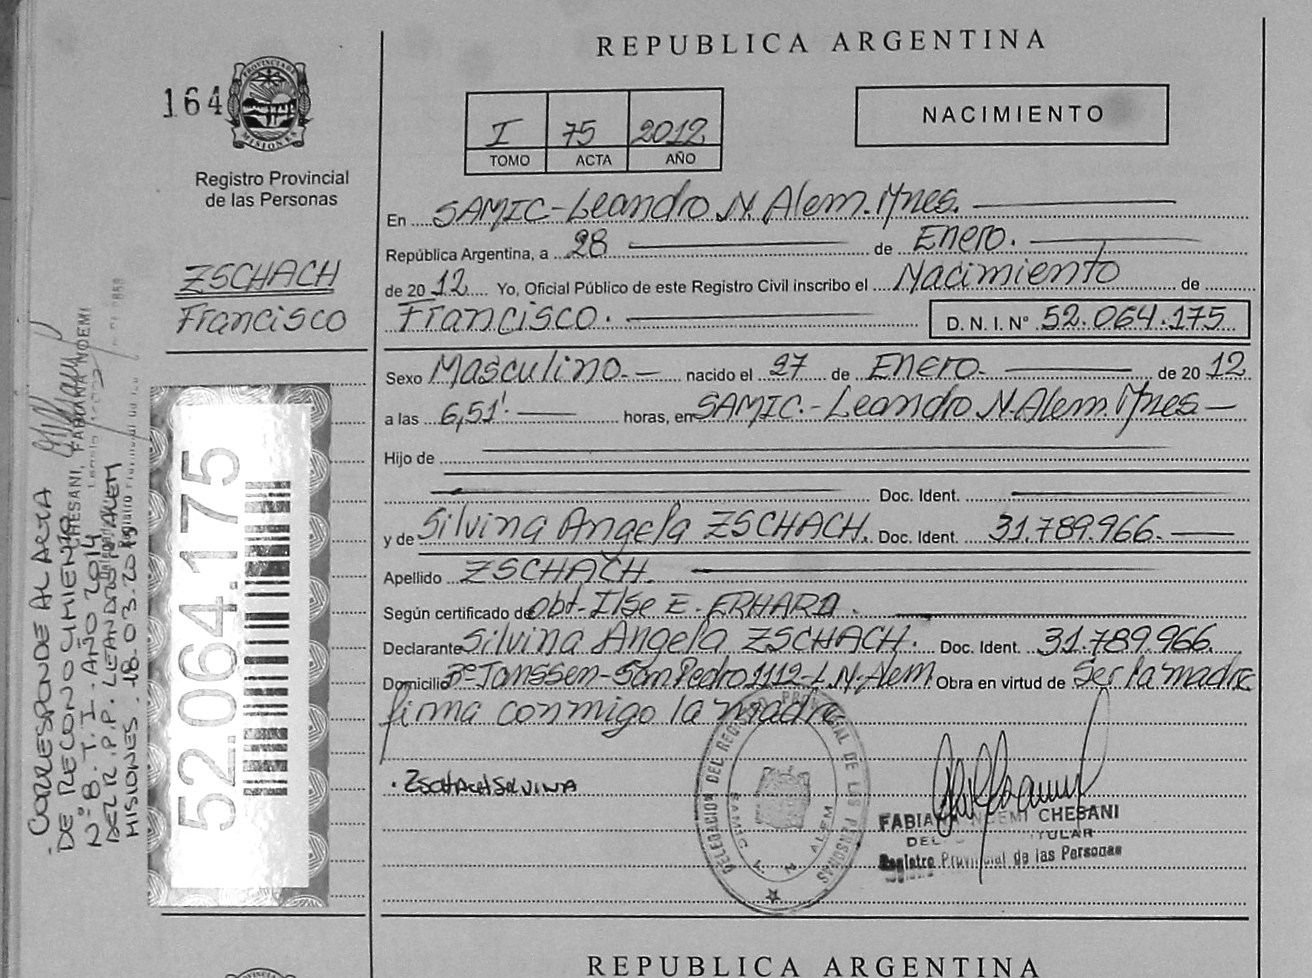 REPUBLICA ARGENTINA
164
PROVINCIA DE MISIONES
Registro Provincial
de las Personas
I 75 2012
TOMO ACTA AÑO
NACIMIENTO
ZSCHACH
Francisco
En SAMIC-Leandro N. Alem. Mnes.
República Argentina, a 28 de Enero.
de 2012 Yo, Oficial Público de este Registro Civil inscribo el Nacimiento de
Francisco. D. N. I. N° 52.064.175
Sexo Masculino.- nacido el 27 de Enero- de 2012
a las 6,51'. horas, en SAMIC.-Leandro N. Alem. Mnes-
Hijo de
Doc. Ident.
y de Silvina Angela ZSCHACH. Doc. Ident. 31.789.966.
Apellido ZSCHACH.
Según certificado de obt. Ilse E. ERHARD.
Declarante Silvina Angela ZSCHACH. Doc. Ident. 31.789.966.
Domicilio B° Janssen-San Pedro 1112-L.N-Alem Obra en virtud de Ser la madre
firma conmigo la madre
. ZSCHACH SILVINA
DELEGACION DEL REGISTRO PROVINCIAL DE LAS PERSONAS
ALEM
FABIANA NOEMI CHESANI
TITULAR
Registro Provincial de las Personas
52.064.175
CORRESPONDE AL ACTA
DE RECONOCIMIENTO
N° 8. T. I. AÑO 2014
DEL R.P.P. LEANDRO N. ALEM
MISIONES. 18.03.2014
CHESANI, FABIANA NOEMI
REPUBLICA ARGENTINA